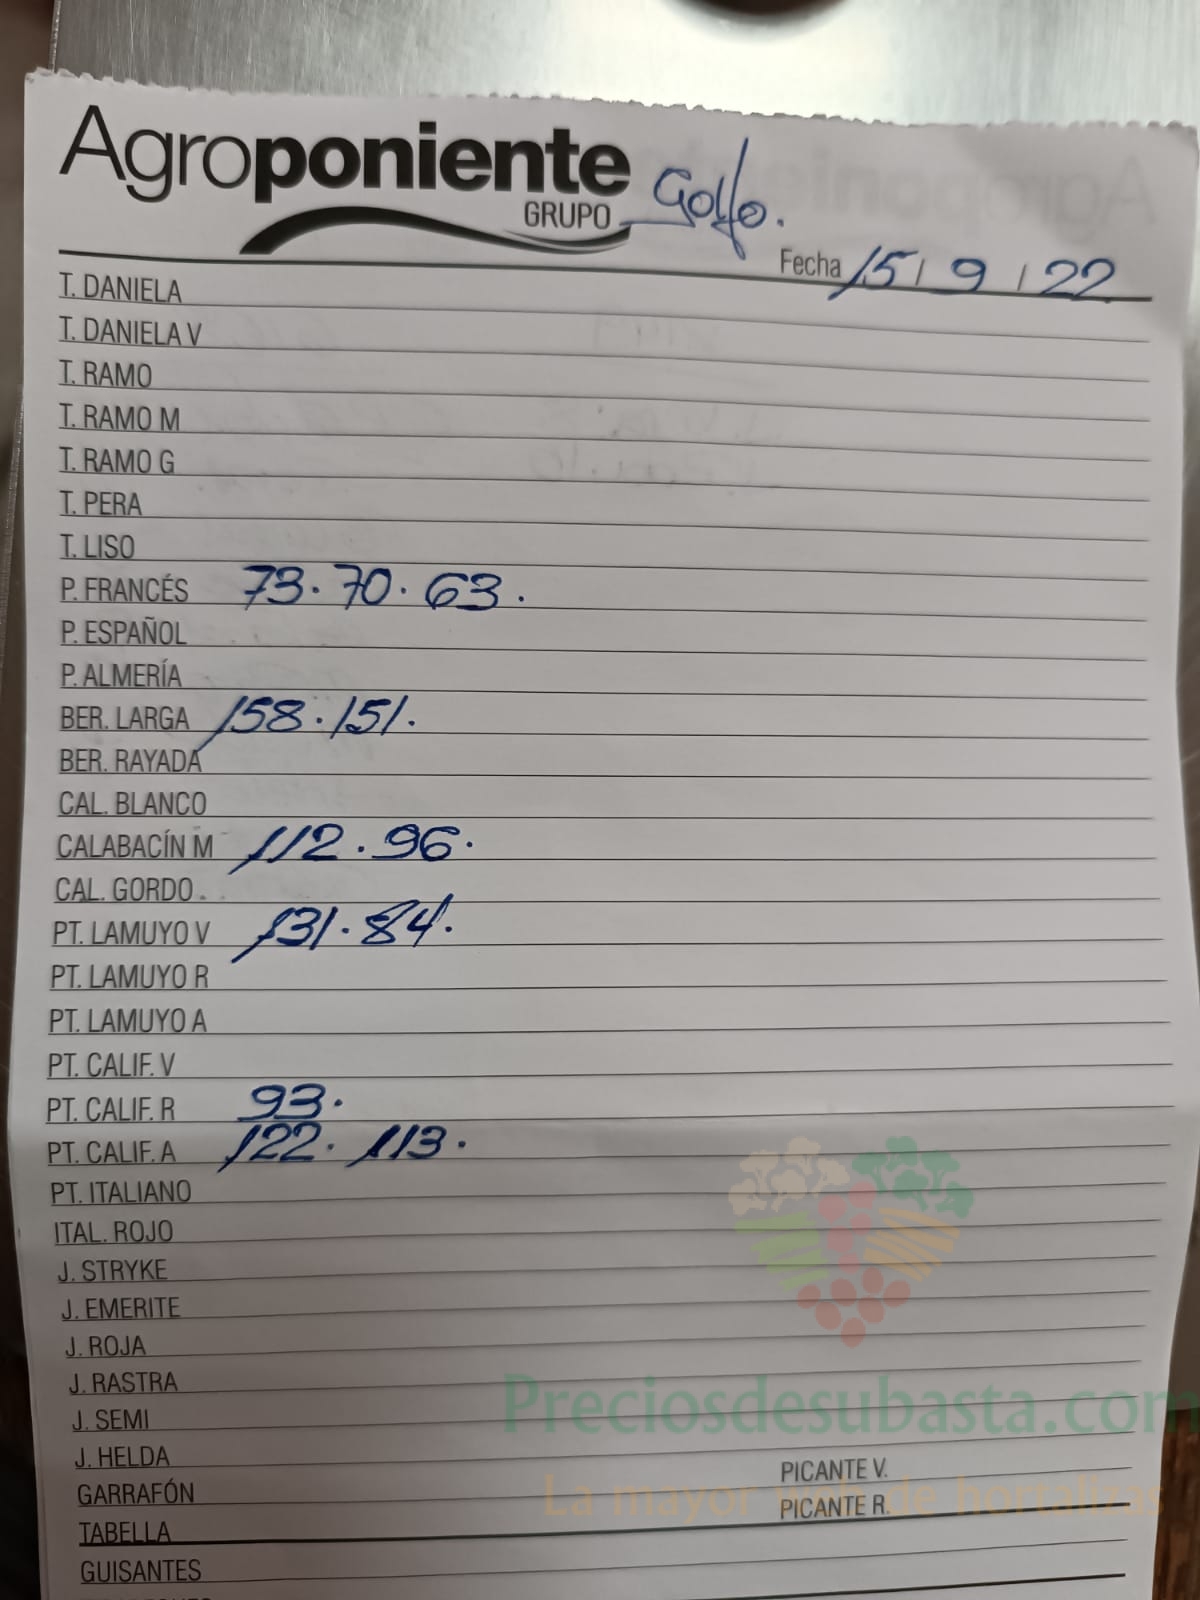 Agroponiente
GRUPO
Golfo.
Fecha 15 / 9 / 22
T. DANIELA
T. DANIELA V
T. RAMO
T. RAMO M
T. RAMO G
T. PERA
T. LISO
P. FRANCÉS 73. 70. 63.
P. ESPAÑOL
P. ALMERÍA
BER. LARGA 158. 151.
BER. RAYADA
CAL. BLANCO
CALABACÍN M 112. 96.
CAL. GORDO
PT. LAMUYO V 131. 84.
PT. LAMUYO R
PT. LAMUYO A
PT. CALIF. V
PT. CALIF. R 93.
PT. CALIF. A 122. 113.
PT. ITALIANO
ITAL. ROJO
J. STRYKE
J. EMERITE
J. ROJA
J. RASTRA
J. SEMI
J. HELDA
GARRAFÓN PICANTE V.
TABELLA PICANTE R.
GUISANTES
Preciosdesubasta.com
La mayor web de hortalizas